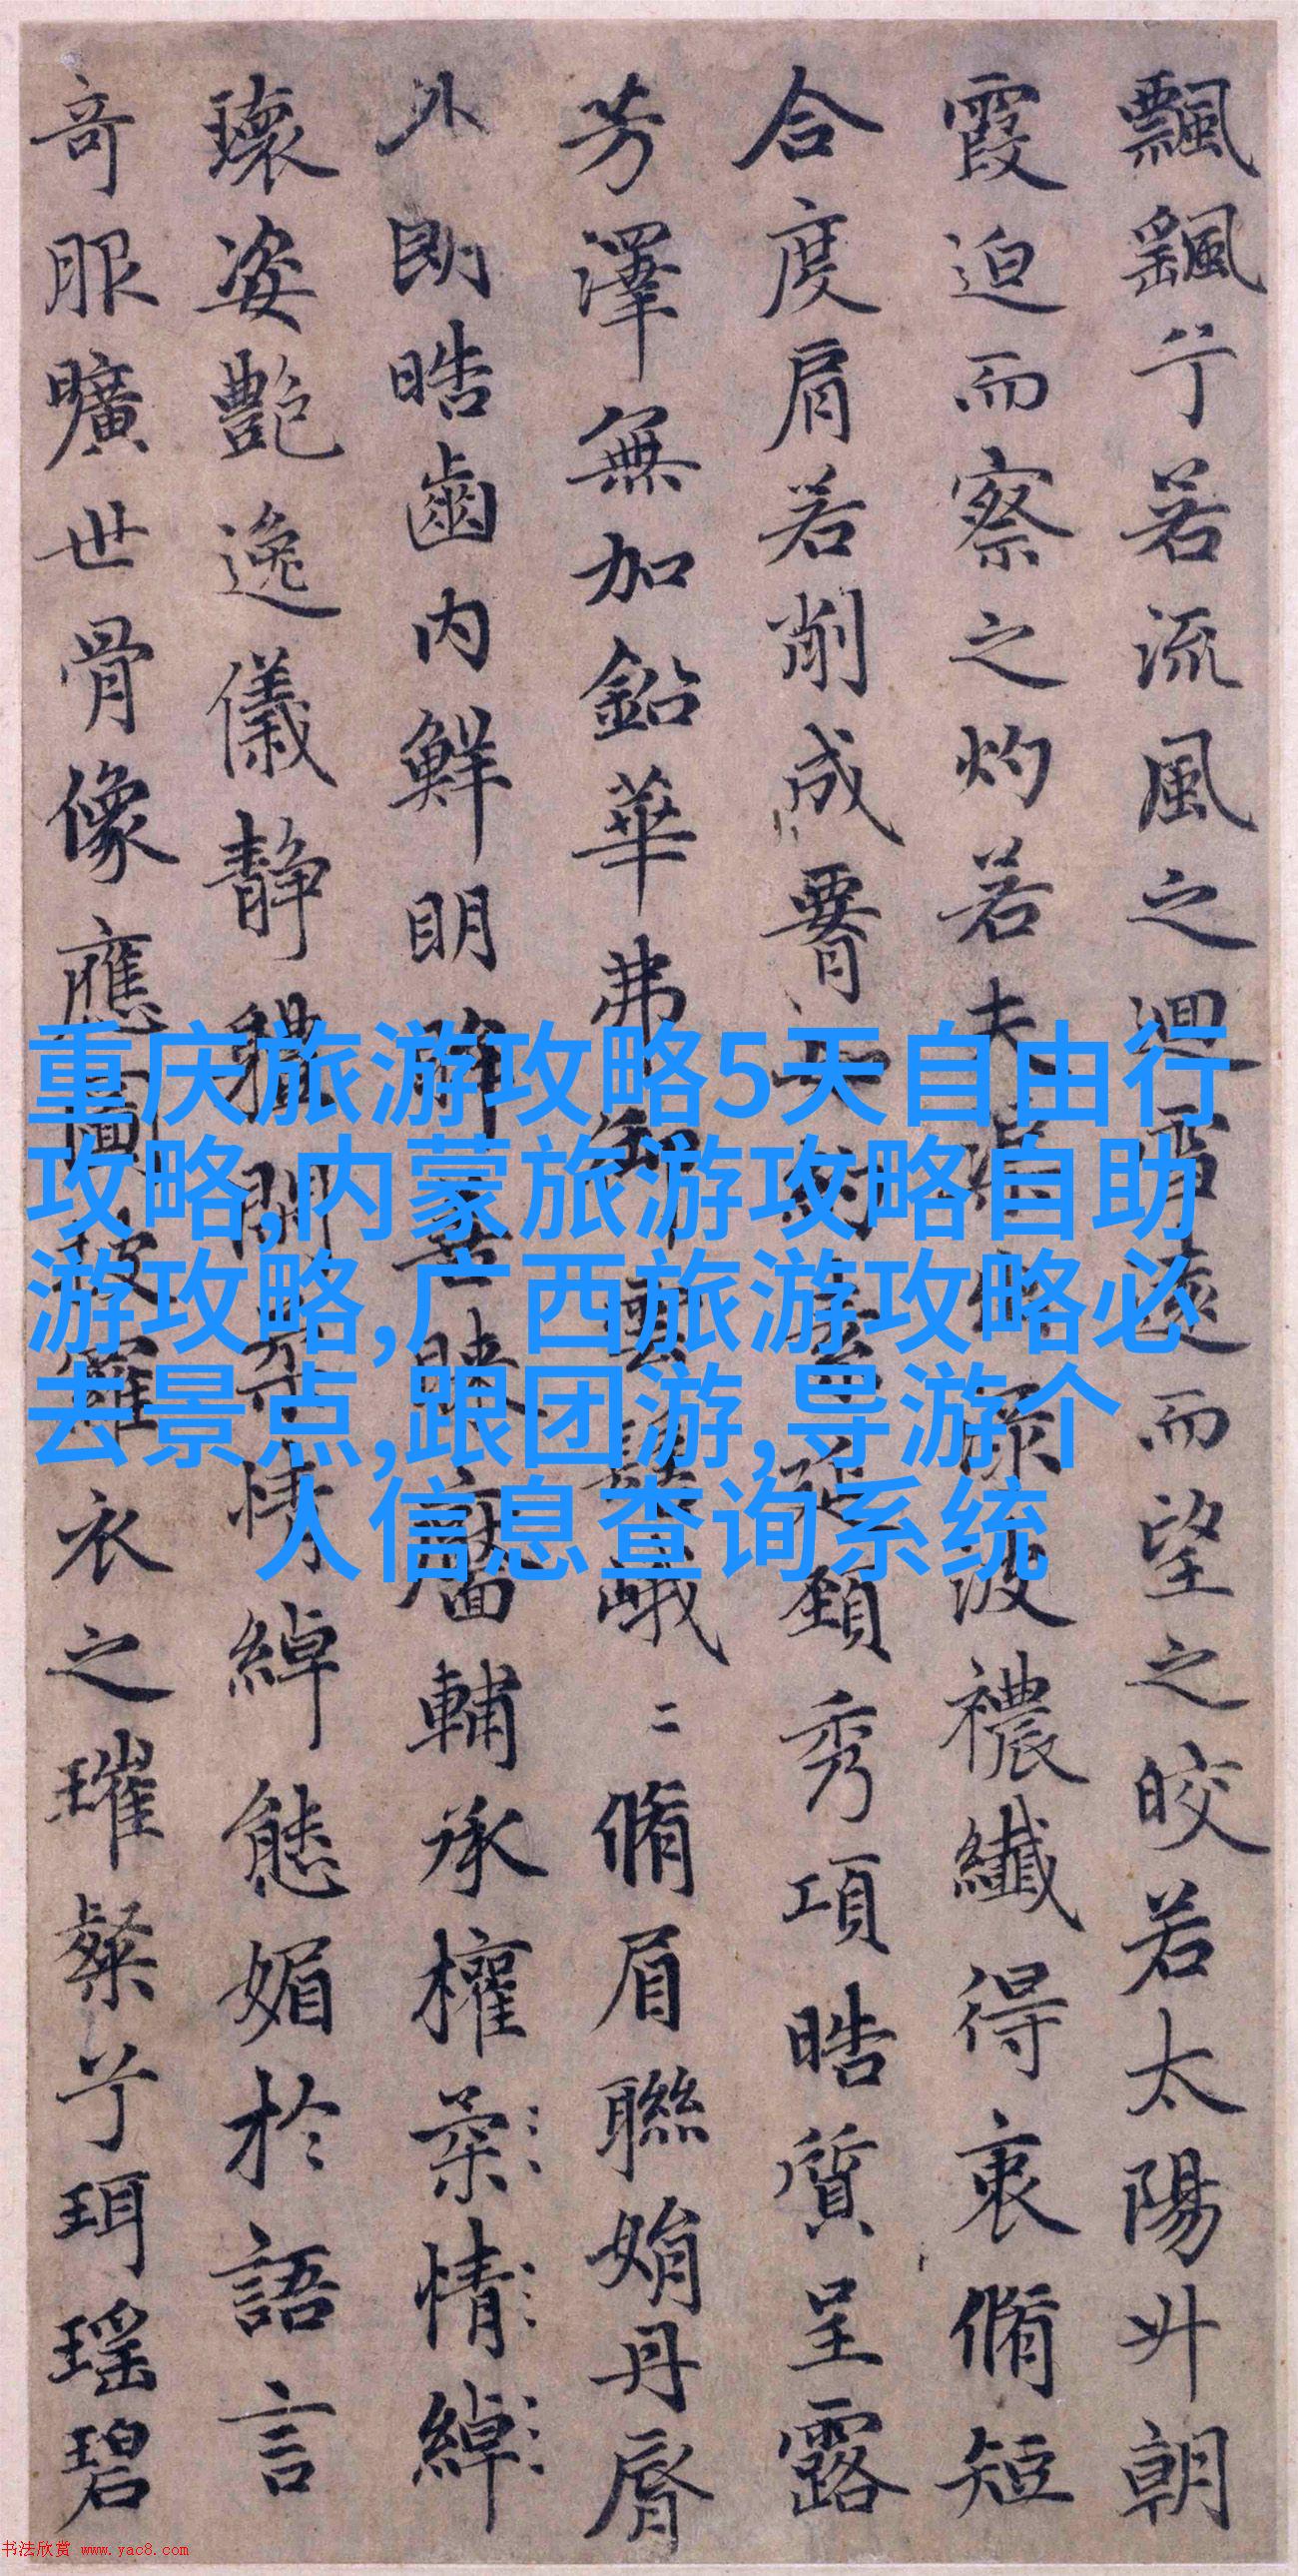 飄颻兮若流風之迴雪遠而望之皎若太陽升朝
霞迫而察之灼若夫渠出淥波襛纖得衷脩短
合度肩若削成腰如約素延頸秀項晧質呈露
芳澤無加鉛華弗御雲髻峨二脩眉聯娟丹脣
外朗晧齒內鮮明眸善睞靨輔承權柔情綽
瓌姿艷逸儀靜體閑柔情綽態媚於語言
奇服曠世骨像應圖披羅衣之璀粲兮珥瑤碧
重庆旅游攻略5天自由行
攻略,内蒙旅游攻略自助
游攻略,广西旅游攻略必
去景点,跟团游,导游个
人信息查询系统
书法欣赏 www.yac8.com